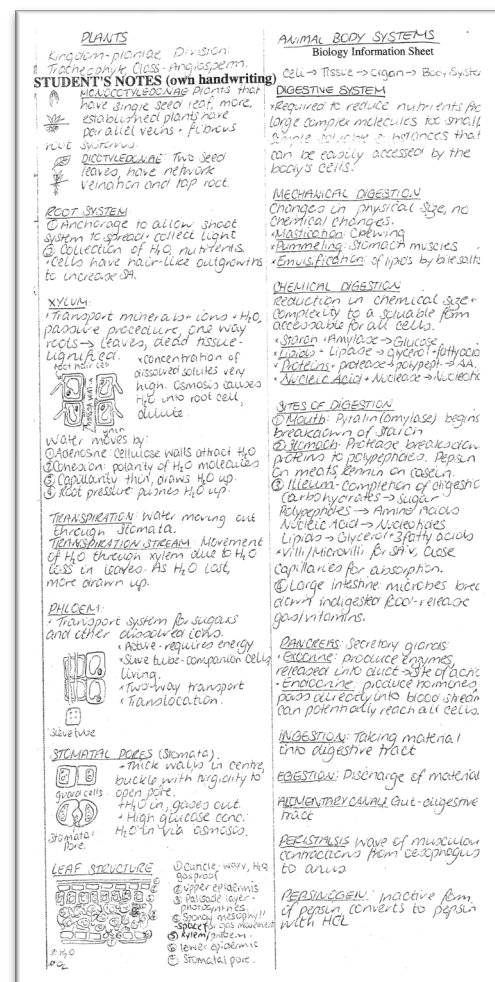 PLANTS
Kingdom-plantae, Division:
Tracheophyte, Class-Angiosperm.
STUDENT'S NOTES (own handwriting)
MONOCOTYLEDONAE Plants that
have single seed leaf, more,
established plants have
parallel veins + fibrous
root systems.
DICOTYLEDONAE: Two seed
leaves, have network
venation and tap root.
ROOT SYSTEM
① Anchorage to allow shoot
system to spread + collect light
② Collection of H₂O, nutrients.
• Cells have hair-like outgrowths
to increase SA.
XYLEM:
• Transport minerals + ions + H₂O,
passive procedure, one way
roots → leaves, dead tissue-
lignified.
root hair cell
*concentration of
dissolved solutes very
high. Osmosis causes
H₂O into root cell,
dilute.
Water moves by:
① Adenosine: Cellulose walls attract H₂O
② Cohesion: polarity of H₂O molecules
③ Capilarity: thin, draws H₂O up.
④ Root pressure: pushes H₂O up.
TRANSPIRATION: Water moving out
through stomata.
TRANSPIRATION STREAM: Movement
of H₂O through xylem due to H₂O
loss in leaves. As H₂O lost,
more drawn up.
PHLOEM:
• Transport system for sugars
and other dissolved ions.
*Active-requires energy
*Sieve tube-companion cells
living.
*Two-way transport
*Translocation.
sieve tube
STOMATAL PORES (Stomata).
• Thick walls in centre,
buckle with turgidity to
open pore.
guard cells
H₂O in, gases out.
• High glucose conc.
H₂O in via osmosis.
stomatal
pore.
LEAF STRUCTURE
① Cuticle: waxy, H₂O
gasproof
② upper epidermis
③ Palisade layer-
photosynthesis.
④ Spongy mesophyll
-space for gas movement
⑤ Xylem/phloem.
⑥ lower epidermis
⑦ Stomatal pore.
H₂O
O₂
ANIMAL BODY SYSTEMS
Biology Information Sheet
Cell → Tissue → Organ → Body System
DIGESTIVE SYSTEM
*Required to reduce nutrients
large complex molecules to small,
simple soluble substances that
can be easily accessed by the
body's cells.
MECHANICAL DIGESTION
Changes in physical size, no
chemical changes.
*Mastication: Chewing
*Pummeling: Stomach muscles
*Emulsification of lipids by bile salts
CHEMICAL DIGESTION
Reduction in chemical size +
complexity to a soluable form
accessable for all cells.
*Starch + Amylase → Glucose
*Lipids + Lipase → glycerol + fatty acid
*Proteins + protease → polypept → AA.
*Nucleic Acid + Nuclease → Nucleotid
SITES OF DIGESTION
① Mouth: Pyralin (amylase) begins
breakdown of starch
② Stomach: Protease breaks down
proteins to polypeptides. Pepsin
on meats, rennin on casein.
③ Illeum-completion of digestio
Carbohydrates → Sugar
Polypeptides → Amino Acids
Nucleic Acid → Nucleotides
Lipids → Glycerol + 3fatty acids
*Villi/Microvilli for SA:V, close
capillaries for absorption.
④ Large intestine: microbes brea
down indigested food-release
gas/vitamins.
PANCREAS: Secretory glands
• Exocrine: produce enzymes,
released into duct → site of
• Endocrine: produce hormones,
pass directly into blood stream
can potentially reach all cells.
INGESTION: Taking material
into digestive tract
EGESTION: Discharge of material
ALIMENTARY CANAL: Gut-digestive
tract
PERISTALSIS Wave of muscular
contractions from oesophagus
to anus.
PEPSINOGEN: Inactive form
of pepsin converts to pepsin
with HCL